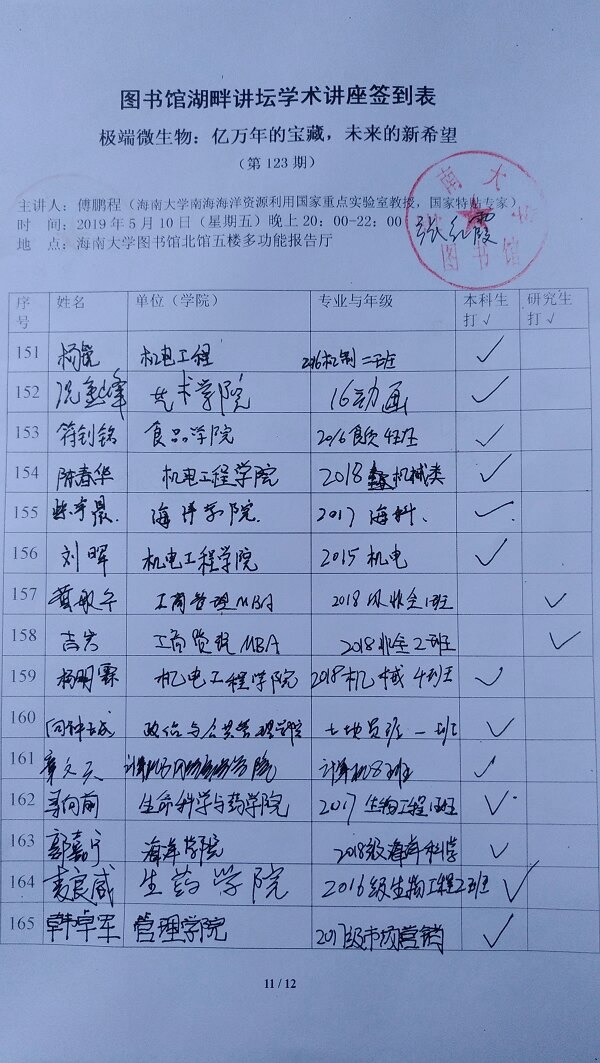 图书馆湖畔讲坛学术讲座签到表
极端微生物：亿万年的宝藏，未来的新希望
（第 123 期）
主讲人：傅鹏程（海南大学南海海洋资源利用国家重点实验室教授，国家特贴专家）
时 间：2019 年 5 月 10 日（星期五）晚上 20：00-22：00
地 点：海南大学图书馆北馆五楼多功能报告厅
南 大 图书馆
张红霞
序号 姓名 单位（学院） 专业与年级 本科生打√ 研究生打√
151 杨 机电工程 2016机制二班 √
152 艺术学院 16动画 √
153 符钊铭 食品学院 2016食质 √
154 陈春华 机电工程学院 2018 机械类 √
155 海洋学院 2017 海科 √
156 刘晖 机电工程学院 2015 机电 √
157 黄敏 工商管理MBA 2018级非全1班 √
158 吉宏 工商管理MBA 2018非全2班 √
159 杨明霖 机电工程学院 2018机械4班 √
160 向钟 政治与公共管理学院 土地 班一班 √
161 章久天 计算机 学院 计算机 班 √
162 向前 生命科学与药学院 2017生物工程 班 √
163 郭嘉宁 海洋学院 2018级海洋科学 √
164 袁良威 生药学院 2016级生物工程2班 √
165 韩卓军 管理学院 2017级市场营销 √
11 / 12